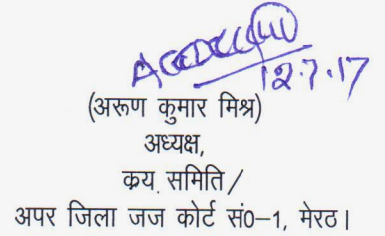 12.7.17
(अरूण कुमार मिश्र)
अध्यक्ष,
क्रय समिति/
अपर जिला जज कोर्ट सं0-1, मेरठ।